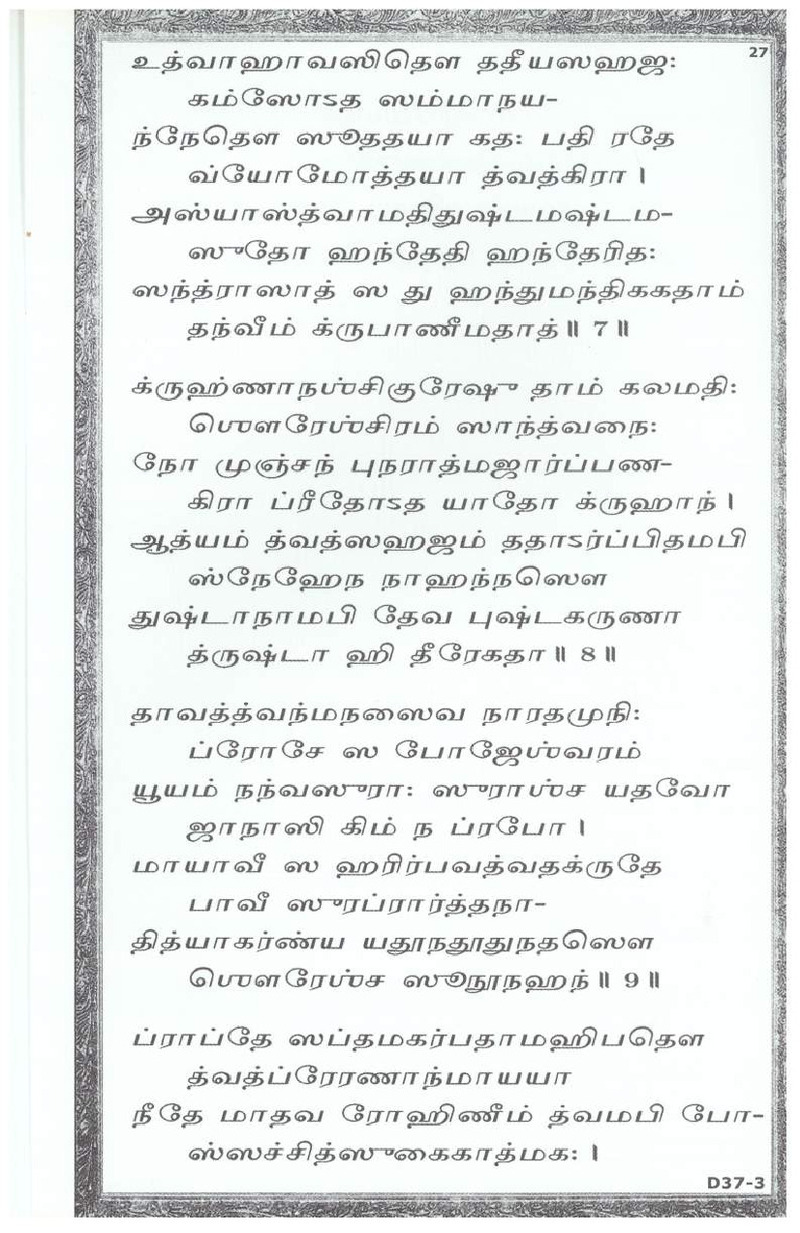 27
உத்வாஹாவஸிதௌ ததீயஸஹஜ:
கம்ஸோऽத ஸம்மாநய-
ந்நேதௌ ஸூததயா கத: பதி ரதே
வ்யோமோத்தயா த்வத்கிரா ।
அஸ்யாஸ்த்வாமதிதுஷ்டமஷ்டம-
ஸுதோ ஹந்தேதி ஹந்தேரித:
ஸந்த்ராஸாத் ஸ து ஹந்துமந்திககதாம்
தந்வீம் க்ருபாணீமதாத்॥ 7॥
க்ருஹ்ணாநஶ்சிகுரேஷு தாம் கலமதி:
ஶௌரேஶ்சிரம் ஸாந்த்வநை:
நோ முஞ்சந் புநராத்மஜார்ப்பண-
கிரா ப்ரீதோऽத யாதோ க்ருஹாந் ।
ஆத்யம் த்வத்ஸஹஜம் ததாऽர்ப்பிதமபி
ஸ்நேஹேந நாஹந்நஸௌ
துஷ்டாநாமபி தேவ புஷ்டகருணா
த்ருஷ்டா ஹி தீரேகதா॥ 8॥
தாவத்த்வந்மநஸைவ நாரதமுநி:
ப்ரோசே ஸ போஜேஶ்வரம்
யூயம் நந்வஸுரா: ஸுராஶ்ச யதவோ
ஜாநாஸி கிம் ந ப்ரபோ ।
மாயாவீ ஸ ஹரிர்பவத்வதக்ருதே
பாவீ ஸுரப்ரார்த்தநா-
தித்யாகர்ண்ய யதூநதூதுநதஸௌ
ஶௌரேஶ்ச ஸூநூநஹந்॥ 9॥
ப்ராப்தே ஸப்தமகர்பதாமஹிபதௌ
த்வத்ப்ரேரணாந்மாயயா
நீதே மாதவ ரோஹிணீம் த்வமபி போ-
ஸ்ஸச்சித்ஸுகைகாத்மக: ।
D37-3